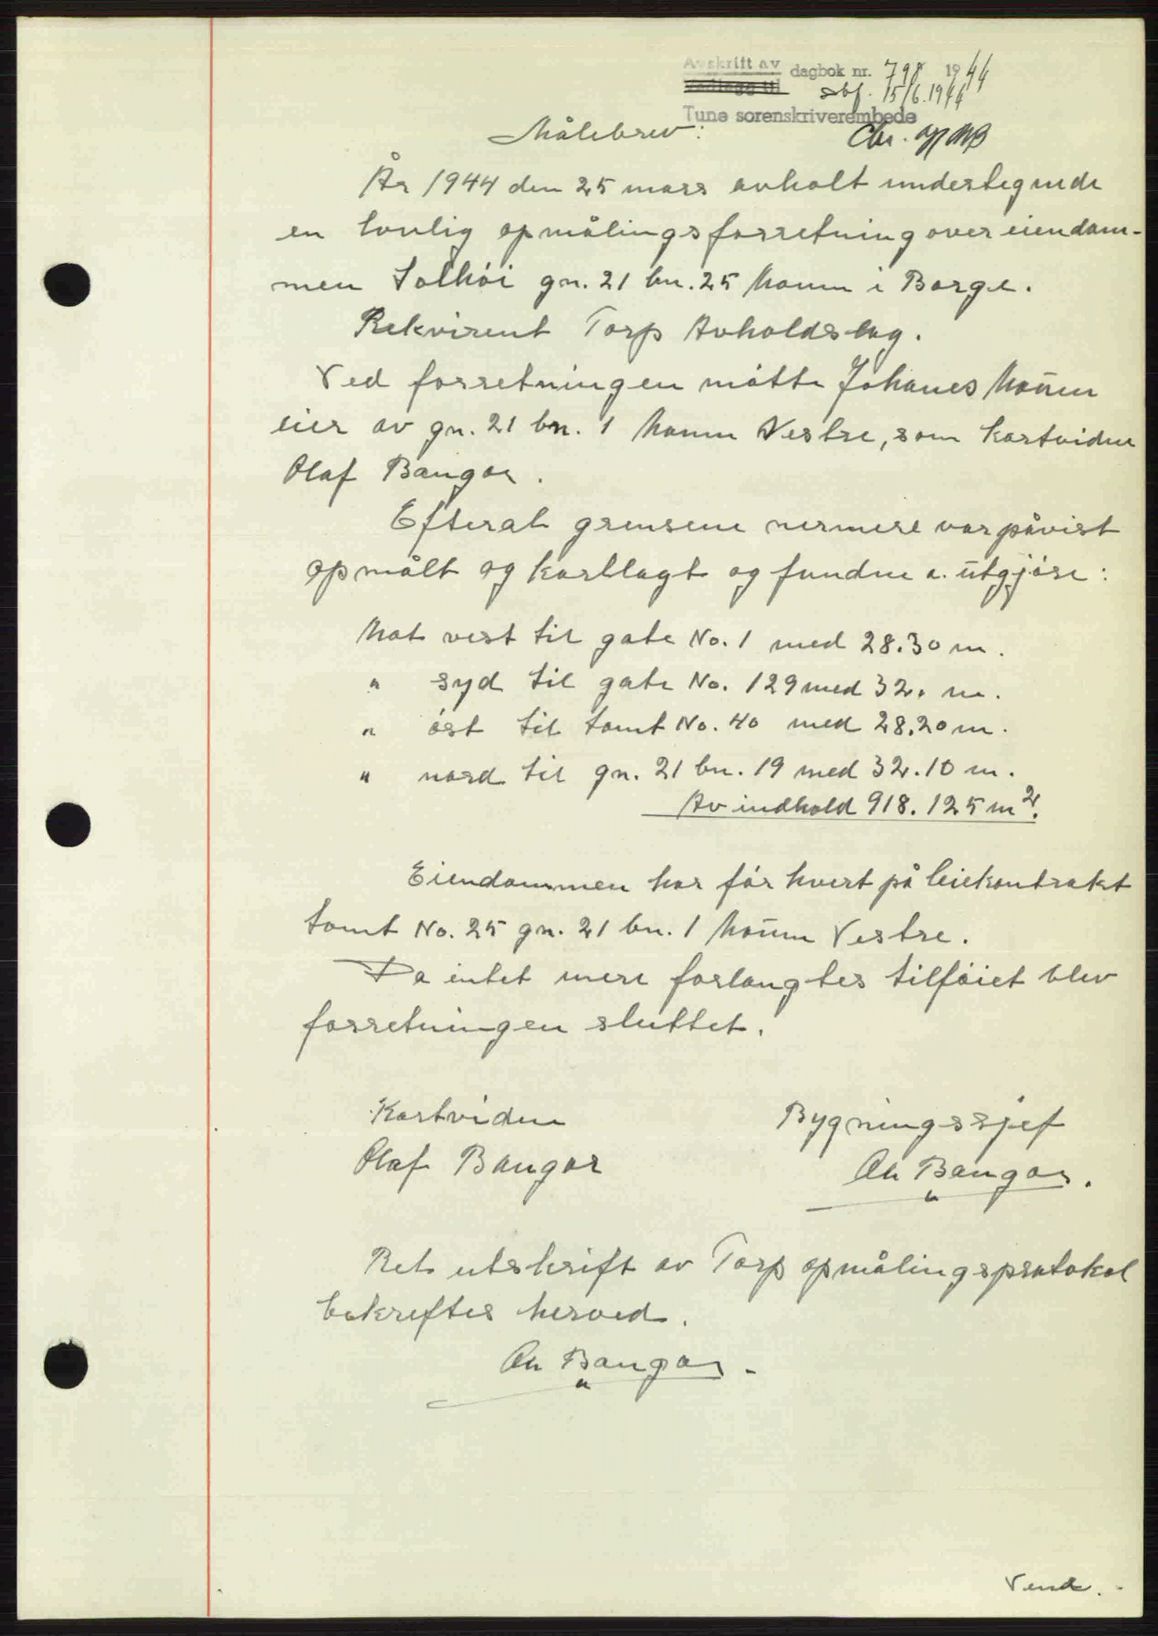 Avskrift av dagbok nr. 798 1944
Vedlegg til sbf. 15/6.1944
Tune sorenskriverembede
Målebrev:
År 1944 den 25 mars avholt undertegnede
en lovlig opmålingsforretning over eiendom-
men Solhöi gn. 21 bn. 25 Haum i Borge.
Rekvirent Torp Avholdslag.
Ved forretningen møtte Johanes Haum
eier av gn. 21 bn. 1 Haum Vestre, som kartvidne
Olaf Bangor.
Efterat grensene nermere var påvist
opmålt og kartlagt og fundne a. utgjöre:
Mot vest til gate No. 1 med 28.30 m.
" syd til gate No. 129 med 32. m.
" öst til tomt No. 40 med 28.20 m.
" nord til gn. 21 bn. 19 med 32.10 m.
Av indhold 918.125 m2.
Eiendommen har för hvert på leiekontrakt
tomt No. 25 gn. 21 bn. 1 Haum Vestre.
Da intet mere forlangtes tilföiet blev
forretningen sluttet.
Kartvidne Bygningssjef
Olaf Bangor Ch Bangor.
Ret utskrift av Torp opmålingsprotokol
bekreftes herved.
Ch Bangor.
Vend.